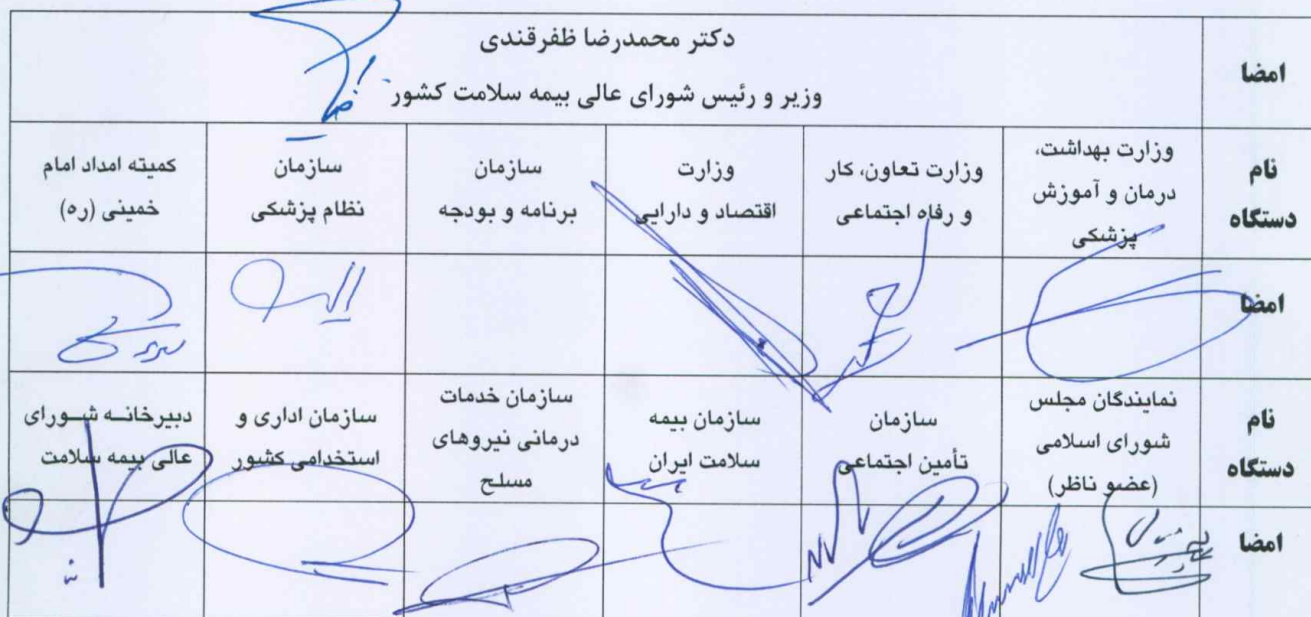 امضا
دکتر محمدرضا ظفرقندی
وزیر و رئیس شورای عالی بیمه سلامت کشور
نام
دستگاه
وزارت بهداشت،
درمان و آموزش
پزشکی
وزارت تعاون، کار
و رفاه اجتماعی
وزارت
اقتصاد و دارایی
سازمان
برنامه و بودجه
سازمان
نظام پزشکی
کمیته امداد امام
خمینی (ره)
امضا
نام
دستگاه
نمایندگان مجلس
شورای اسلامی
(عضو ناظر)
سازمان
تأمین اجتماعی
سازمان بیمه
سلامت ایران
سازمان خدمات
درمانی نیروهای
مسلح
سازمان اداری و
استخدامی کشور
دبیرخانه شورای
عالی بیمه سلامت
امضا